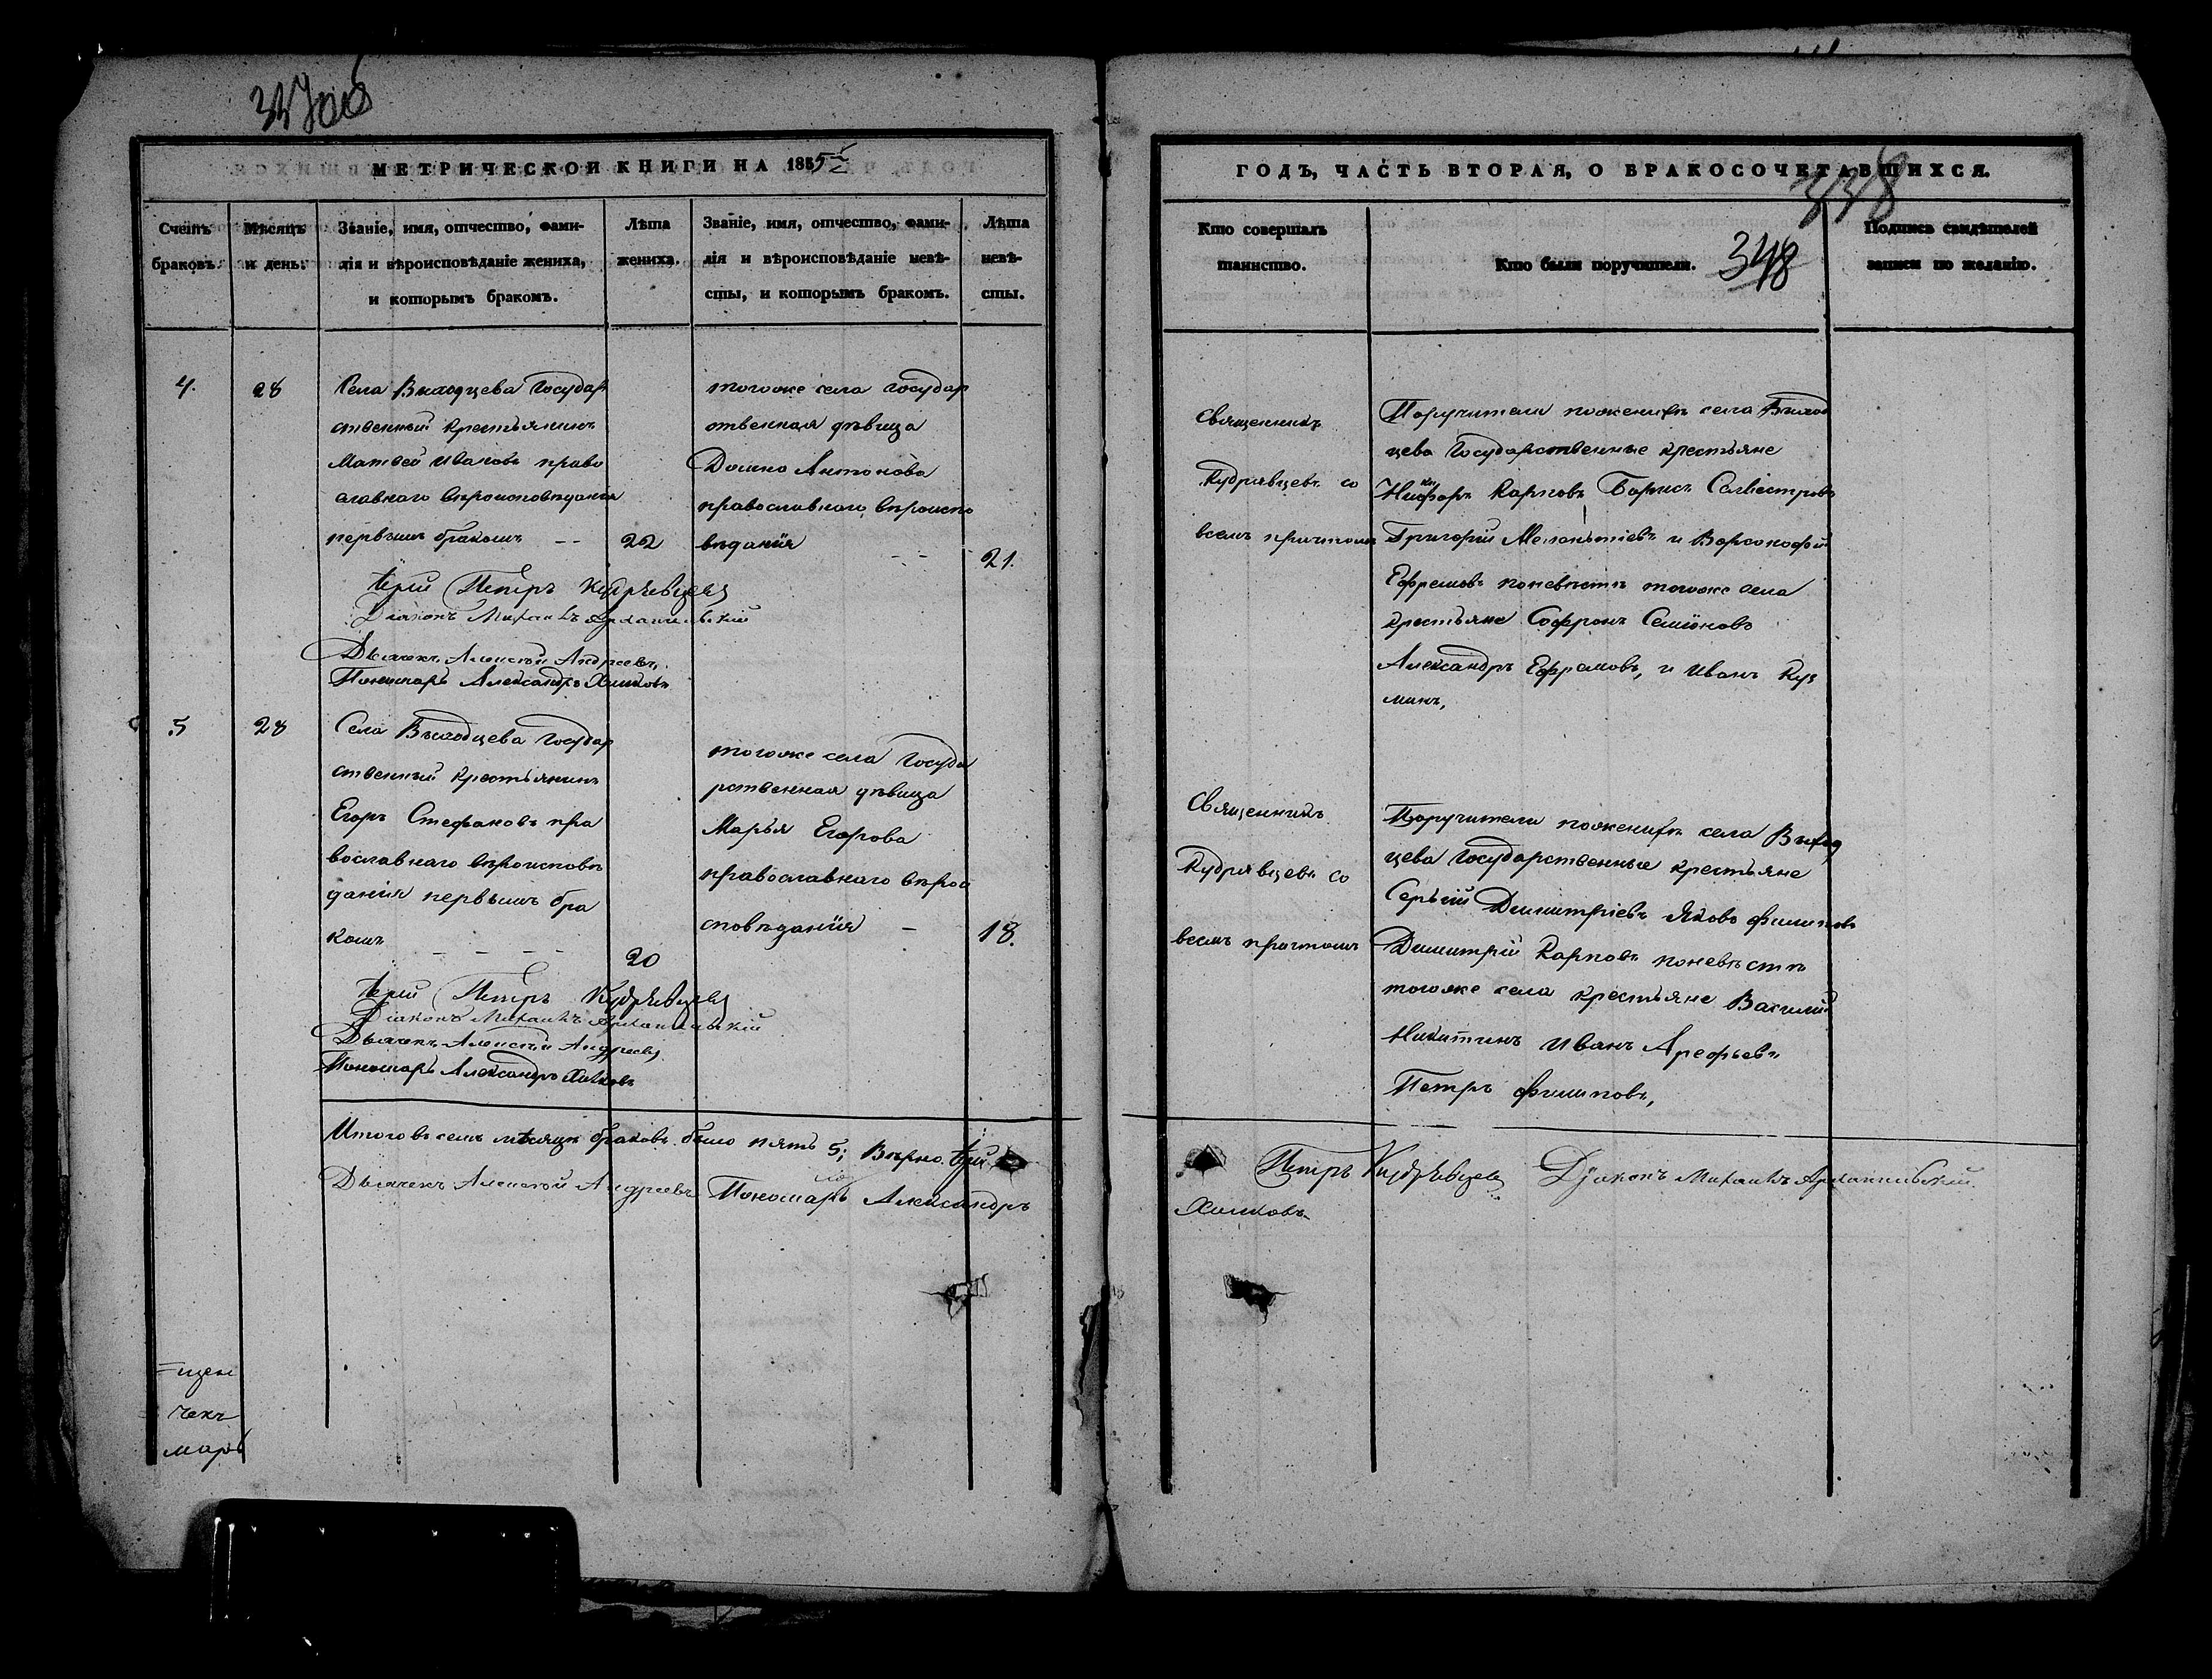 МЕТРИЧЕСКОЙ КНИГИ НА 1855
Счетъ браковъ.
Мѣсяцъ и день.
Званіе, имя, отчество, фами-
лія и вѣроисповѣданіе жениха,
и которымъ бракомъ.
Лѣта
жениха.
Званіе, имя, отчество, фами-
лія и вѣроисповѣданіе невѣ-
сты, и которымъ бракомъ.
Лѣта
невѣ-
сты.
4.
28
Села Выходцева Государ
ственный крестьянинъ
Матвей Ивановъ право
славнаго вѣроисповѣданія
первымъ бракомъ - -
22
тогоже села Государ
ственная дѣвица
Домна Антонова
православнаго вѣроиспо
вѣданія - -
21.
Іерей Петръ Кудрявцевъ
Діаконъ Михаилъ Архангельскій
Дьячекъ Алексѣй Андреевъ
Пономарь Александръ
5
28
Села Выходцева Государ
ственный крестьянинъ
Егоръ Стефановъ пра
вославнаго вѣроисповѣ
данія первымъ бра
комъ - - - -
20
тогоже села Госуда
рственная дѣвица
Марья Егорова
православнаго вѣрои
сповѣданія -
18.
Іерей Петръ Кудрявцевъ
Діаконъ Михаилъ Архангельскій
Дьячекъ Алексѣй Андреевъ
Пономарь Александръ
Итого въ семъ мѣсяцѣ браковъ было пять 5; Вѣрно. Іерей
Дьячекъ Алексѣй Андреевъ Пономарь Александръ
щен
чекъ
марь
ГОДЪ, ЧАСТЬ ВТОРАЯ, О БРАКОСОЧЕТАВШИХСЯ.
338
Кто совершалъ
таинство.
Кто были поручители.
348
Подпись свидѣтелей
записи по желанію.
Священникъ
Кудрявцевъ со
всемъ причтомъ
Поручители поженихѣ села Выход
цева Государственные крестьяне
Никифоръ Карповъ Борисъ Селивестровъ
Григорій Мелентіевъ и Варсонофій
Ефремовъ поневѣстѣ тогоже села
крестьяне Софронъ Семіоновъ
Александръ Ефремовъ, и Иванъ Куз
минъ,
Священникъ
Кудрявцевъ со
всемъ причтомъ
Поручители поженихѣ села Выход
цева Государственные крестьяне
Сергѣй Димитріевъ Яковъ Филиповъ
Димитрій Карповъ поневѣстѣ
тогоже села крестьяне Василій
Никитинъ Иванъ Арефьевъ
Петръ Филиповъ,
Петръ Кудрявцевъ Діаконъ Михаилъ Архангельскій